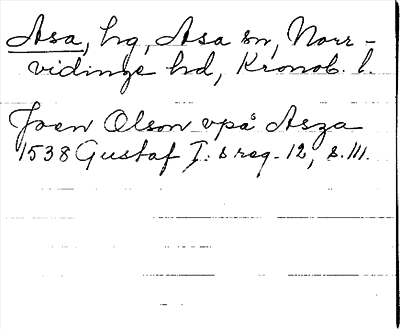 Asa, hg, Asa sn, Norr-
vidinge hd, Kronob. l.
Joen Olson vpå Asza
1538 Gustaf I:s reg. 12, s. 111.